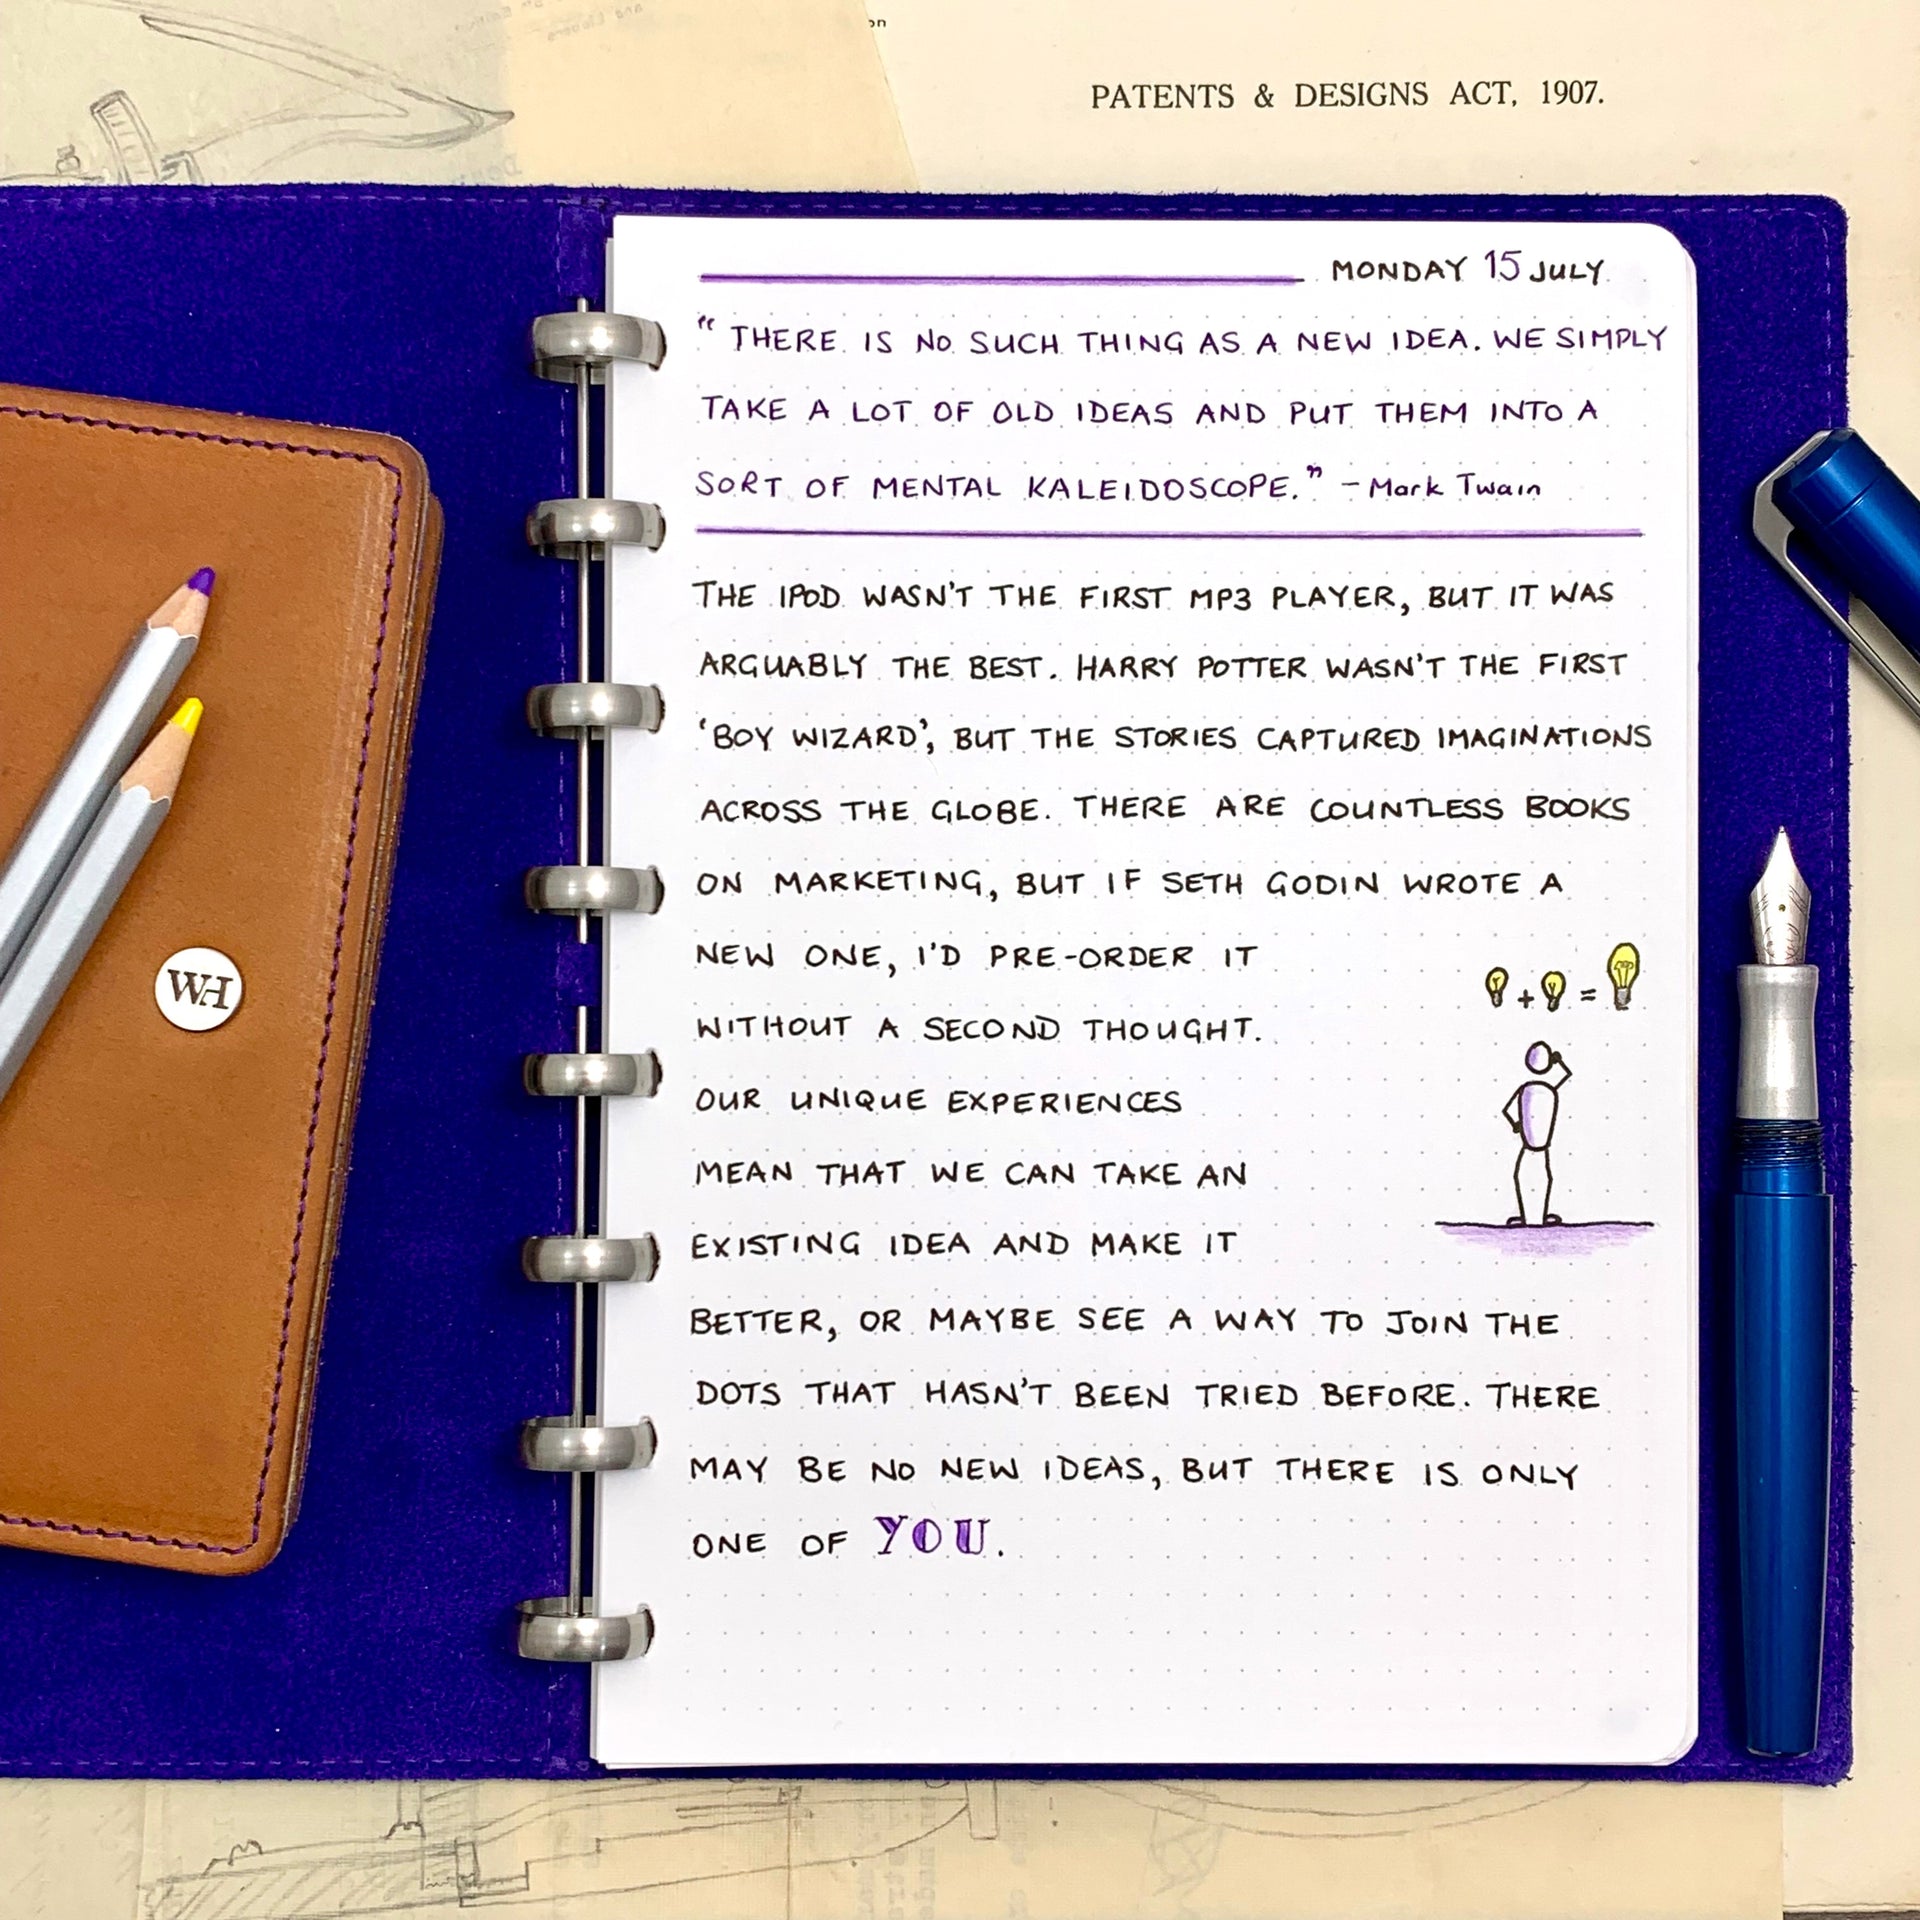 on
PATENTS & DESIGNS ACT, 1907.
MONDAY 15 JULY
"THERE IS NO SUCH THING AS A NEW IDEA. WE SIMPLY
TAKE A LOT OF OLD IDEAS AND PUT THEM INTO A
SORT OF MENTAL KALEIDOSCOPE." - Mark Twain
THE IPOD WASN'T THE FIRST MP3 PLAYER, BUT IT WAS
ARGUABLY THE BEST. HARRY POTTER WASN'T THE FIRST
'BOY WIZARD', BUT THE STORIES CAPTURED IMAGINATIONS
ACROSS THE GLOBE. THERE ARE COUNTLESS BOOKS
ON MARKETING, BUT IF SETH GODIN WROTE A
NEW ONE, I'D PRE-ORDER IT
WITHOUT A SECOND THOUGHT.
OUR UNIQUE EXPERIENCES
MEAN THAT WE CAN TAKE AN
EXISTING IDEA AND MAKE IT
BETTER, OR MAYBE SEE A WAY TO JOIN THE
DOTS THAT HASN'T BEEN TRIED BEFORE. THERE
MAY BE NO NEW IDEAS, BUT THERE IS ONLY
ONE OF YOU.
+ =
WH